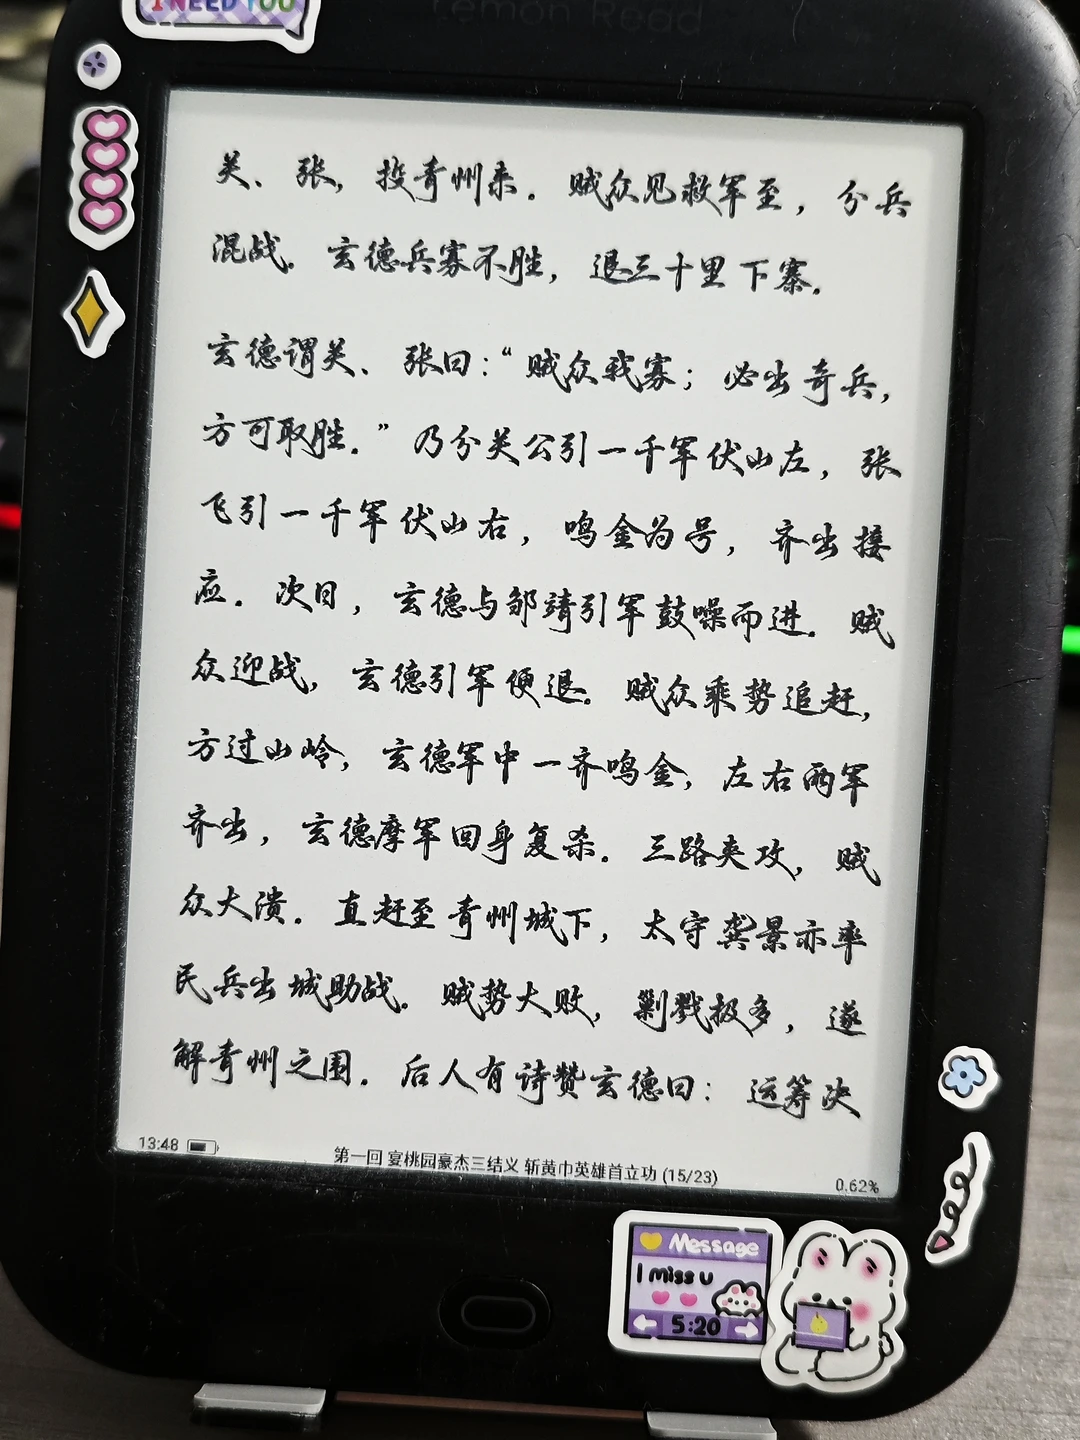 I NEED YOU
Lemon Read
关、张，投青州来。贼众见救军至，分兵
混战。玄德兵寡不胜，退三十里下寨。
玄德谓关、张曰：“贼众我寡；必出奇兵，
方可取胜。”乃分关公引一千军伏山左，张
飞引一千军伏山右，鸣金为号，齐出接
应。次日，玄德与邹靖引军鼓噪而进。贼
众迎战，玄德引军便退。贼众乘势追赶，
方过山岭，玄德军中一齐鸣金，左右两军
齐出，玄德摩军回身复杀。三路夹攻，贼
众大溃。直赶至青州城下，太守龚景亦率
民兵出城助战。贼势大败，剿戮极多，遂
解青州之围。后人有诗赞玄德曰：运筹决
13:48
第一回 宴桃园豪杰三结义 斩黄巾英雄首立功 (15/23)
0.62%
Message
I miss u
5:20